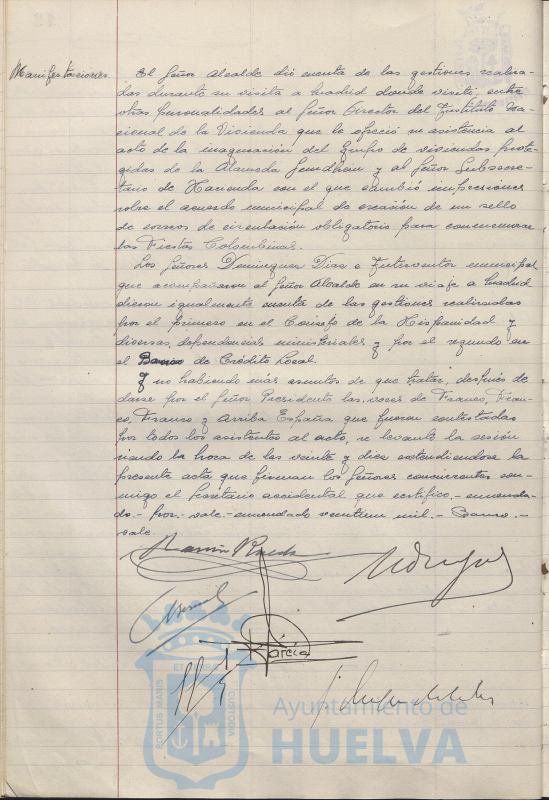 Manifestaciones.
El Señor Alcalde dió cuenta de las gestiones realiza-
das durante su visita a Madrid donde visitó, entre
otras personalidades al Señor Director del Instituto Na-
cional de la Vivienda que le ofreció su asistencia al
acto de la inauguración del Grupo de viviendas prote-
gidas de la Alameda Sundheim y al Señor Subsecre-
tario de Hacienda con el que cambió impresiones
sobre el acuerdo municipal de creación de un sello
de correos de circulación obligatorio para conmemorar
las Fiestas Colombinas.
Los Señores Dominguez Diaz e Interventor municipal
que acompañaron al Señor Alcalde en su viaje a Madrid
dieron igualmente cuenta de las gestiones realizadas
por el primero en el Consejo de la Hispanidad y
diversas dependencias ministeriales y por el segundo en
el Banco de Crédito Local.
Y no habiendo más asuntos de que tratar, después de
darse por el Señor Presidente las voces de Franco, Fran-
co, Franco y Arriba España que fueron contestadas
por todos los asistentes al acto, se levantó la sesión
siendo la hora de las veinte y diez extendiéndose la
presente acta que firman los Señores concurrentes con-
migo el Secretario accidental que certifico.- enmenda-
do.- por.- vale.- enmendado veintiun mil.- Banco.-
vale.
García
PORTUS MARIS
CUSTODIA
Ayuntamiento de
HUELVA